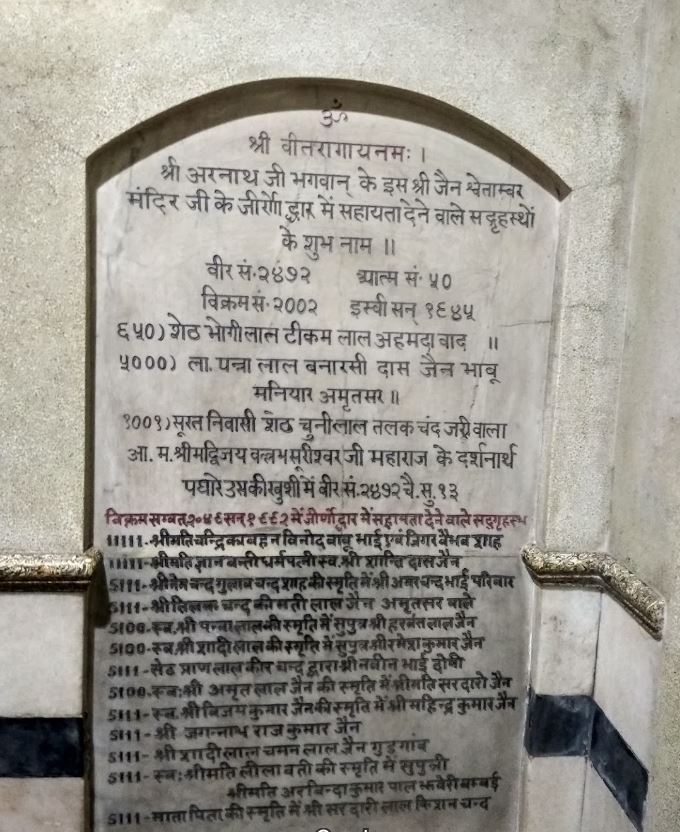 ॐ
श्री वीतरागायनमः ।
श्री अरनाथ जी भगवान् के इस श्री जैन श्वेताम्बर
मंदिर जी के जीर्णोद्धार में सहायता देने वाले सद्गृहस्थों
के शुभ नाम ॥
वीर सं॰२४७२ आत्म सं॰ ५०
विक्रम सं॰२००२ इस्वी सन् १९४५
६५०) शेठ भोगीलाल टीकम लाल अहमदाबाद ॥
५०००) ला. पन्ना लाल बनारसी दास जैन भाबू
मनियार अमृतसर ॥
१००१) सूरत निवासी शेठ चुनीलाल तलक चंद जरीवाला
आ. म. श्रीमद्विजय वल्लभसूरीश्वर जी महाराज के दर्शनार्थ
पधारे उसकी खुशी में वीर सं.२४७२ चै. सु. १३
विक्रम सम्वत् २०४९ सन् १९९२ में जीर्णोद्वार में सहायता देने वाले सद्गृहस्थ
11111-श्रीमति चन्द्रिका बहन विनोद बाबू भाई एवं जिगर वैभव शाह
11111-श्रीमति ज्ञान वन्ती धर्मपत्नी स्व. श्री शान्ति दास जैन
5111-श्री नेम चन्द गुलाब चन्द शाह की स्मृति में श्री अमर चन्द भाई परिवार
5111-श्री तिलक चन्द की मती लाल जैन अमृतसर वाले
5100-स्व. श्री पन्ना लाल की स्मृति में सुपुत्र श्री हरबंत लाल जैन
5100-स्व. श्री शादी लाल की स्मृति में सुपुत्र श्री रमेश कुमार जैन
5111-सेठ प्राण लाल कीर चन्द द्वारा श्री नवीन भाई दोषी
5100-स्व: श्री अमृत लाल जैन की स्मृति में श्रीमति सरदारो जैन
5111-स्व. श्री विजय कुमार जैन की स्मृति में श्री महिन्द्र कुमार जैन
5111-श्री जगन्नाथ राज कुमार जैन
5111-श्री शादी लाल चमन लाल जैन गुड़गांव
5111-स्व: श्रीमति लीलावती की स्मृति में सुपुत्री
श्रीमति अरविन्दा कुमार पाल झवेरी बम्बई
5111-माता पिता की स्मृति में श्री सरदारी लाल किशन चन्द